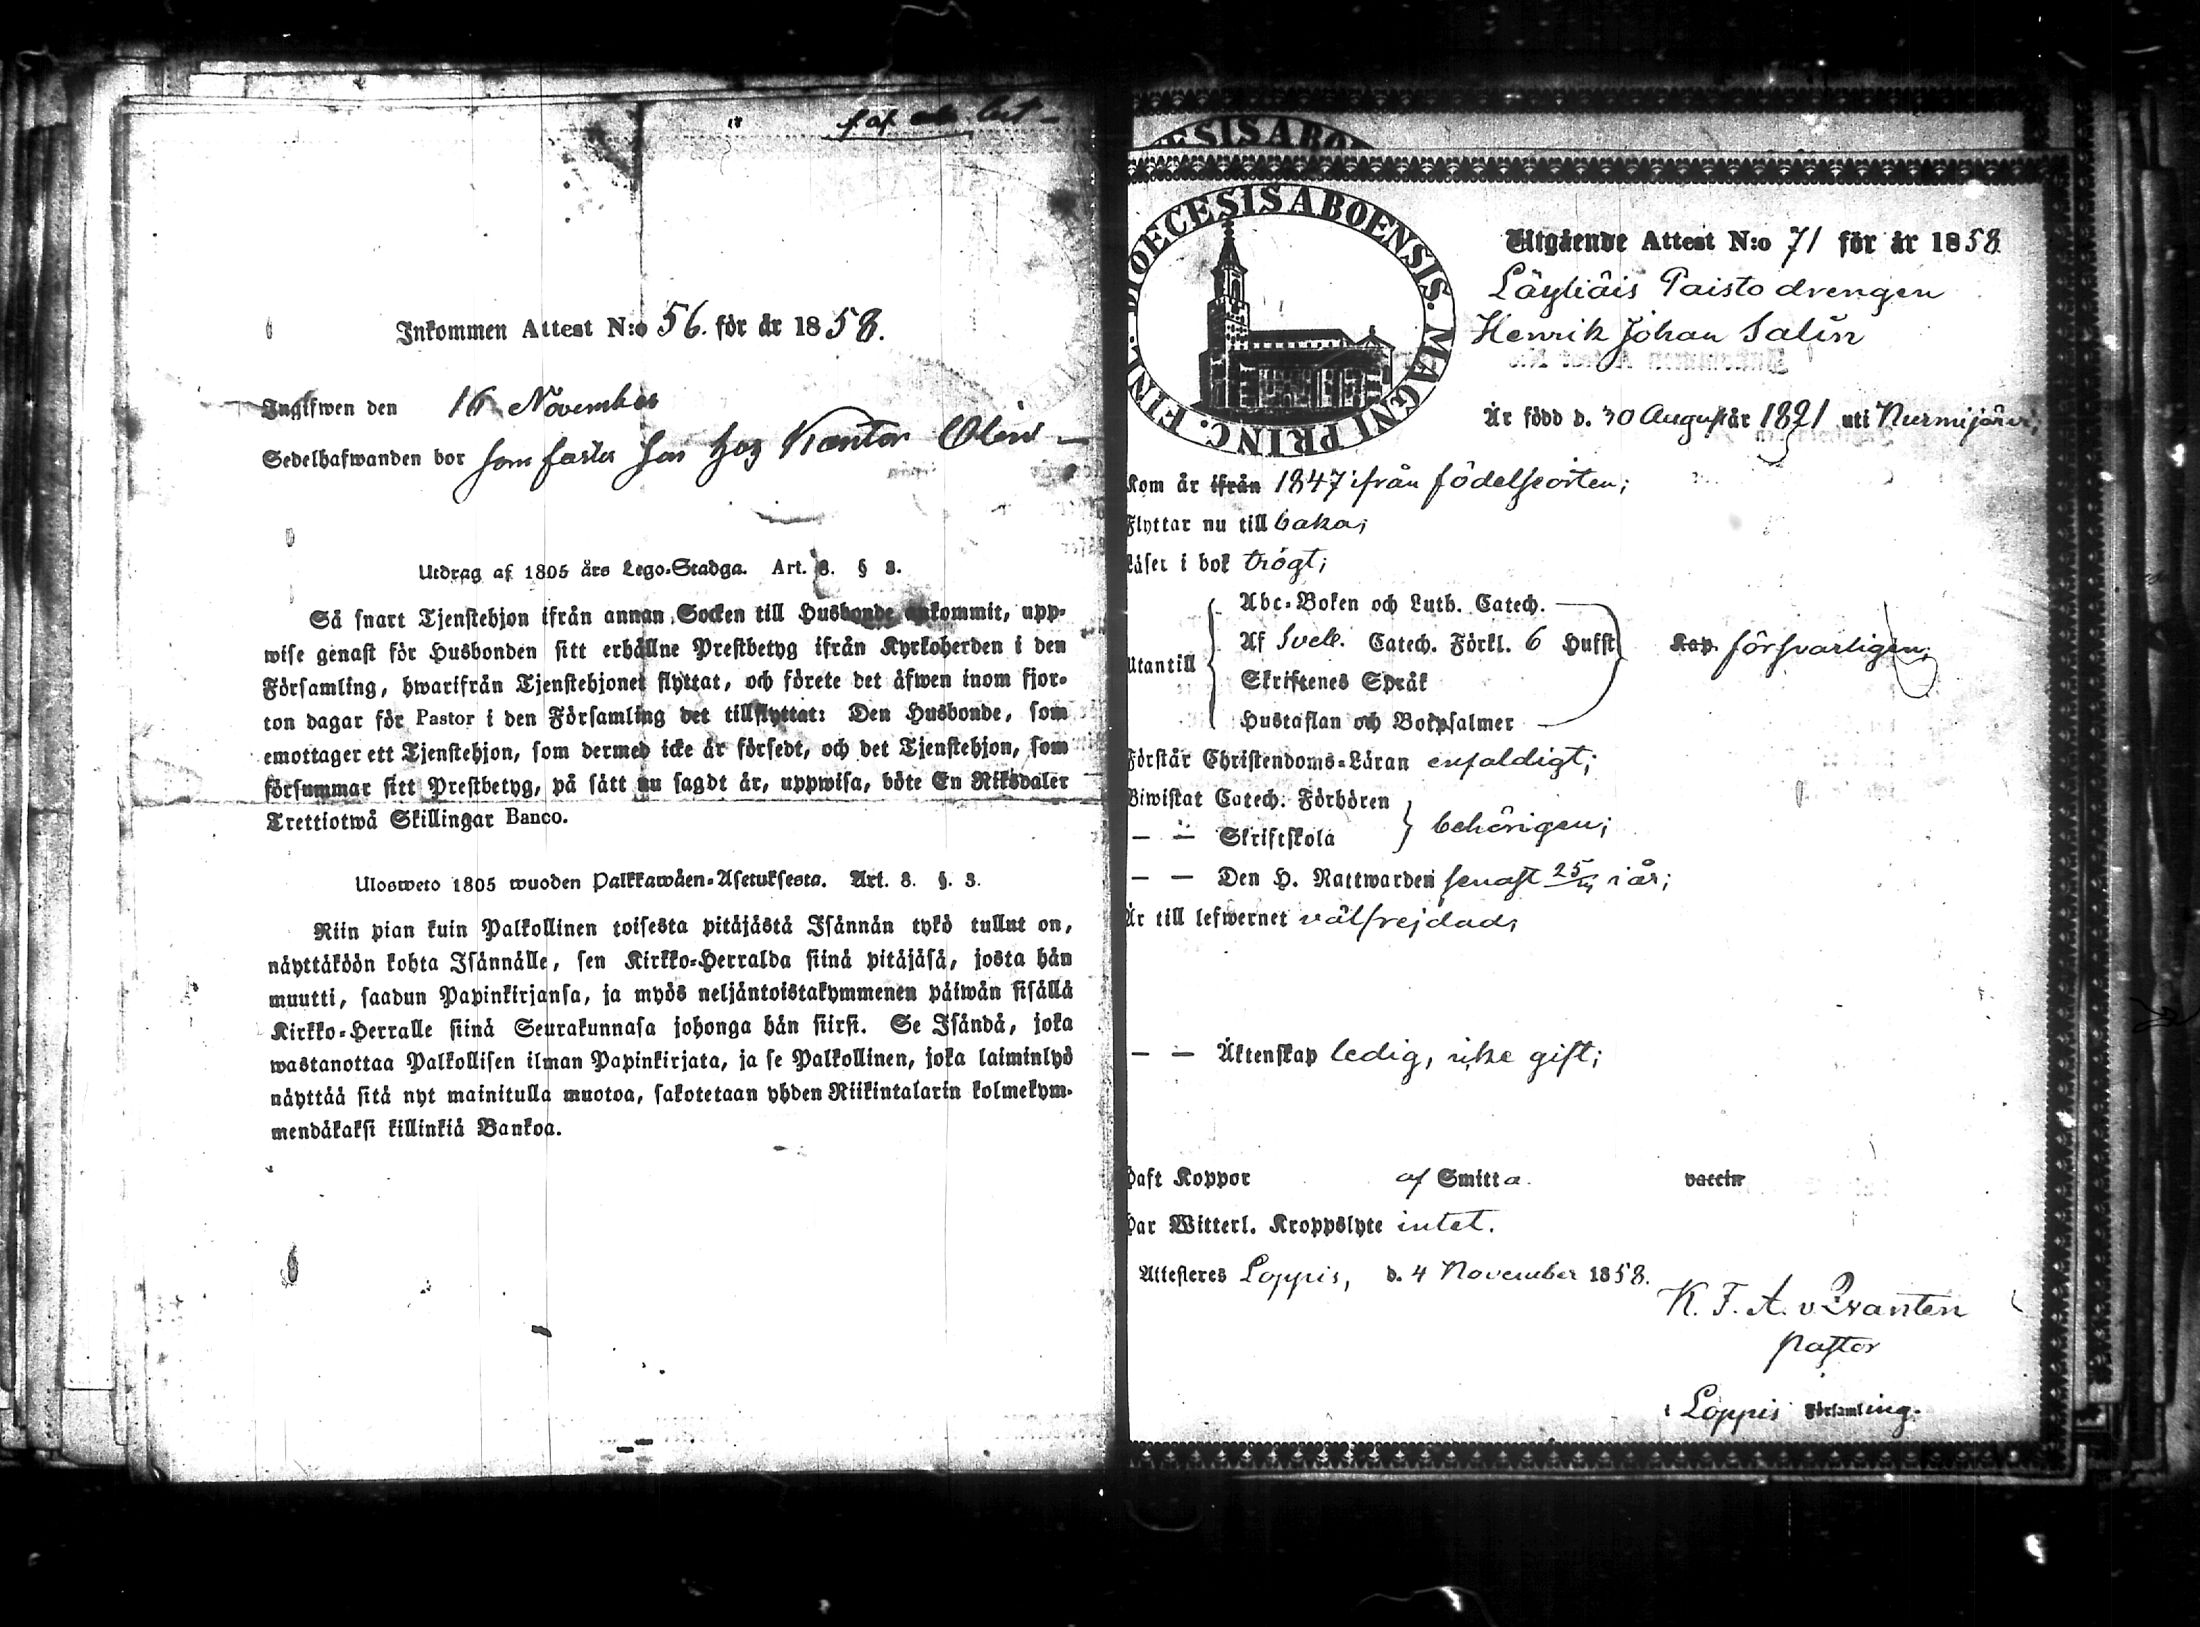 Inkommen Attest N:o 56. för år 1858.
Ingifwen den 16 November
Sedelhafwanden bor som hos Kantor
Utdrag af 1805 års Lego-Stadga. Art. 8. § 3.
Så snart Tjenstehjon ifrån annan Socken till Husbonde ankommit, upp-
wise genast för Husbonden sitt erhållne Prestbetyg ifrån Kyrkoherden i den
Församling, hwarifrån Tjenstehjonet flyttat, och förete det äfwen inom fjor-
ton dagar för Pastor i den Församling det tillflyttat: Den Husbonde, som
emottager ett Tjenstehjon, som dermed icke är försedt, och det Tjenstehjon, som
försummar sitt Prestbetyg, på sätt nu sagdt är, uppwisa, böte En Riksdaler
Trettiotwå Skillingar Banco.
Ulosweto 1805 wuoden Palkkawäen-Asetuksesta. Art. 8. §. 3.
Niin pian kuin Palkollinen toisesta pitäjästä Isännän tykö tullut on,
näyttäköön kohta Isännälle, sen Kirkko-Herralda siinä pitäjäsä, josta hän
muutti, saadun Papinkirjansa, ja myös neljäntoistakymmenen päiwän sisällä
Kirkko-Herralle siinä Seurakunnasa johonga hän siirsi. Se Isändä, joka
wastanottaa Palkollisen ilman Papinkirjata, ja se Palkollinen, joka laiminlyö
näyttää sitä nyt mainitulla muotoa, sakotetaan yhden Riikintalarin kolmekym-
mendäkaksi killinkiä Bankoa.
DIOECESIS ABOENSIS. MAGNI PRINC. FINL.
Utgående Attest N:o 71 för år 1858
Läyliäis Paisto drengen
Henrik Johan Salin
Är född d. 30 August år 1821 uti Nurmijärvi;
Kom år ifrån 1847 ifrån födelseorten;
Flyttar nu till baka;
Läser i bok trögt;
Utantill
Abc-Boken och Luth. Catech.
Af Sveb. Catech. Förkl. 6 Hufst Kap. försvarligen;
Skriftenes Språk
Hustaflan och Botpsalmer
Förstår Christendoms-Läran enfaldigt;
Biwistat Catech. Förhören
— — Skriftskola behörigen;
— — Den H. Nattwarden senast 25/ i år;
Är till lefwernet välfrejdad;
— — Äktenskap ledig, icke gift;
Haft Koppor af Smitta. vaccin
Har Witterl. Kroppslyte intet.
Attesteres Loppis, d. 4 November 1858.
K. F. A. v Qvanten
pastor
i Loppis Församling.